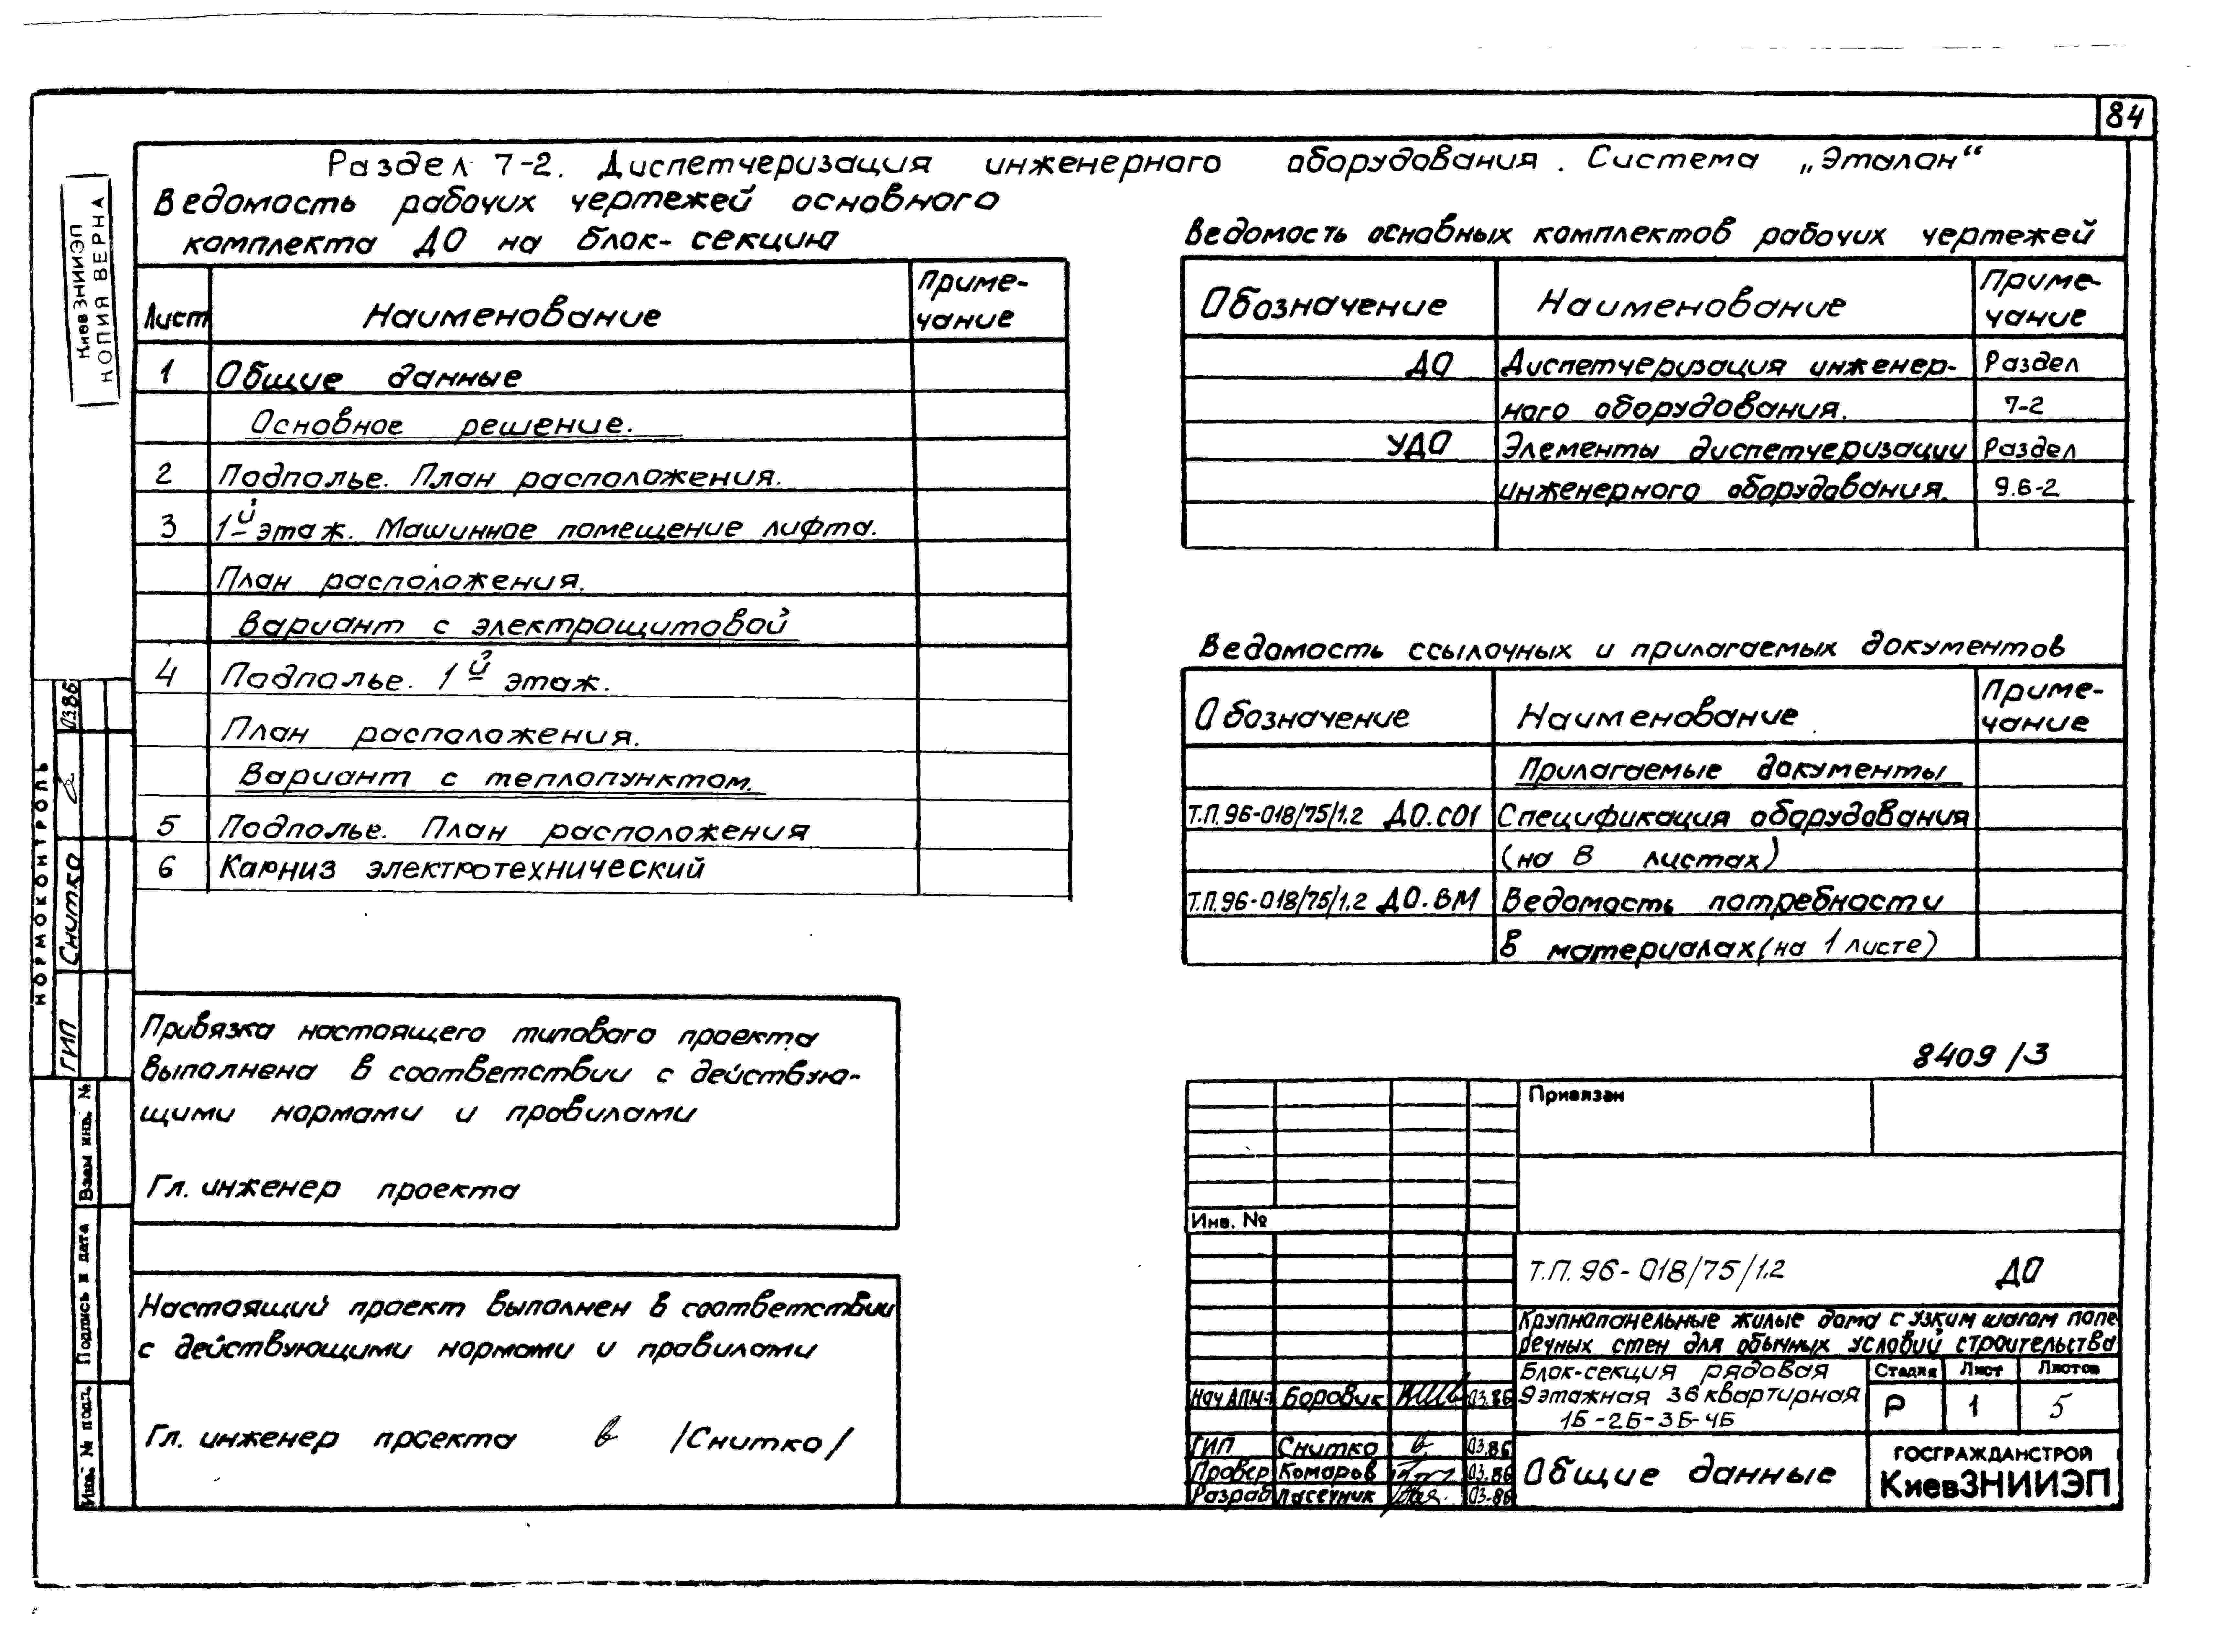 84
Раздел 7-2. Диспетчеризация инженерного оборудования. Система „Эталан“
Ведомость рабочих чертежей основного
комплекта ДО на блок-секцию
Лист Наименование Приме-
чание
1 Общие данные
Основное решение.
2 Подполье. План расположения.
3 1й этаж. Машинное помещение лифта.
План расположения.
Вариант с электрощитовой
4 Подполье. 1й этаж.
План расположения.
Вариант с теплопунктом.
5 Подполье. План расположения
6 Карниз электротехнический
Привязка настоящего типового проекта
выполнена в соответствии с действую-
щими нормами и правилами
Гл. инженер проекта
Настоящий проект выполнен в соответствии
с действующими нормами и правилами
Гл. инженер проекта /Снитко/
Ведомость основных комплектов рабочих чертежей
Обозначение Наименование Приме-
чание
ДО Диспетчеризация инженер- Раздел
ного оборудования. 7-2
УДО Элементы диспетчеризации Раздел
инженерного оборудования. 9.6-2
Ведомость ссылочных и прилагаемых документов
Обозначение Наименование Приме-
чание
Прилагаемые документы
Т.П.96-018/75/1.2 ДО.СО1 Спецификация оборудования
(на 8 листах)
Т.П.96-018/75/1.2 ДО.ВМ Ведомость потребности
в материалах (на 1 листе)
8409/3
Привязан
Инв. №
Т.П. 96-018/75/1.2 ДО
Крупнопанельные жилые дома с узким шагом попе
речных стен для обычных условий строительства
Блок-секция рядовая
9этажная 36квартирная
1Б-2Б-3Б-4Б
Стадия Лист Листов
Р 1 5
Нач АПМ-1 Боровик 03.86
ГИП Снитко 03.86
Провер Комаров 03.86
Разраб Пасечник 03.86
Общие данные
ГОСГРАЖДАНСТРОЙ
КиевЗНИИЭП
Киев ЗНИИЭП
КОПИЯ ВЕРНА
НОРМОКОНТРОЛЬ
ГИП Снитко 03.86
Взам инв. №
Подпись и дата
Инв. № подл.